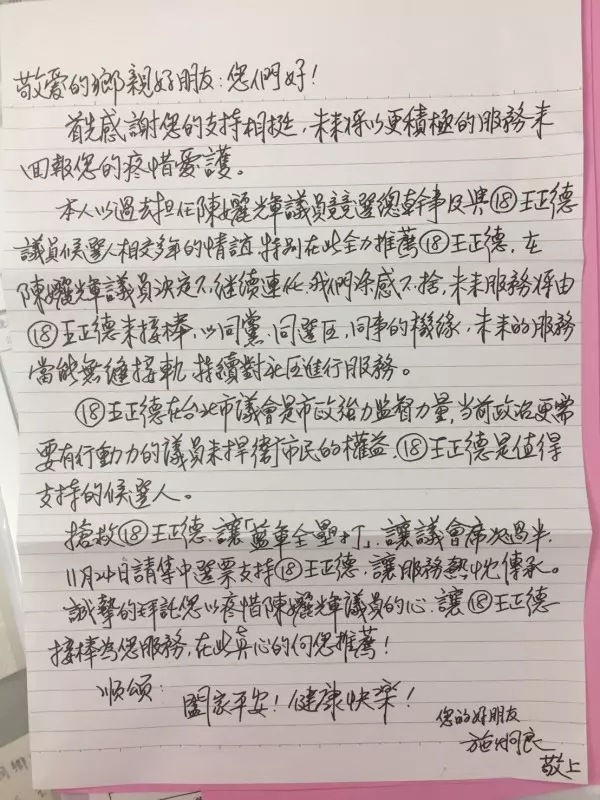 敬愛的鄉親好朋友：您們好！
首先感謝您的支持相挺，未來將以更積極的服務來
回報您的疼惜愛護。
本人以過去担任陳孋輝議員競選總幹事及與⑱王正德
議員候選人相交多年的情誼，特別在此全力推薦⑱王正德，在
陳孋輝議員決定不继續連任，我們深感不捨，未來服務將由
⑱王正德來接棒，以同黨、同選區，同事的機緣，未來的服務
當能無縫接軌，持續對社區進行服務。
⑱王正德在台北市議會是市政強力監督力量，當前政治更需
要有行動力的議員來捍衛市民的權益，⑱王正德是值得
支持的候選人。
搶救⑱王正德，讓「藍軍全壘打」，讓議會席次過半，
11月24日請集中選票支持⑱王正德，讓服務熱忱傳承。
誠摯的拜託您以疼惜陳孋輝議員的心，讓⑱王正德
接棒為您服務，在此真心的向您推薦！
順頌：
闔家平安！健康快樂！
您的好朋友
施炳良
敬上